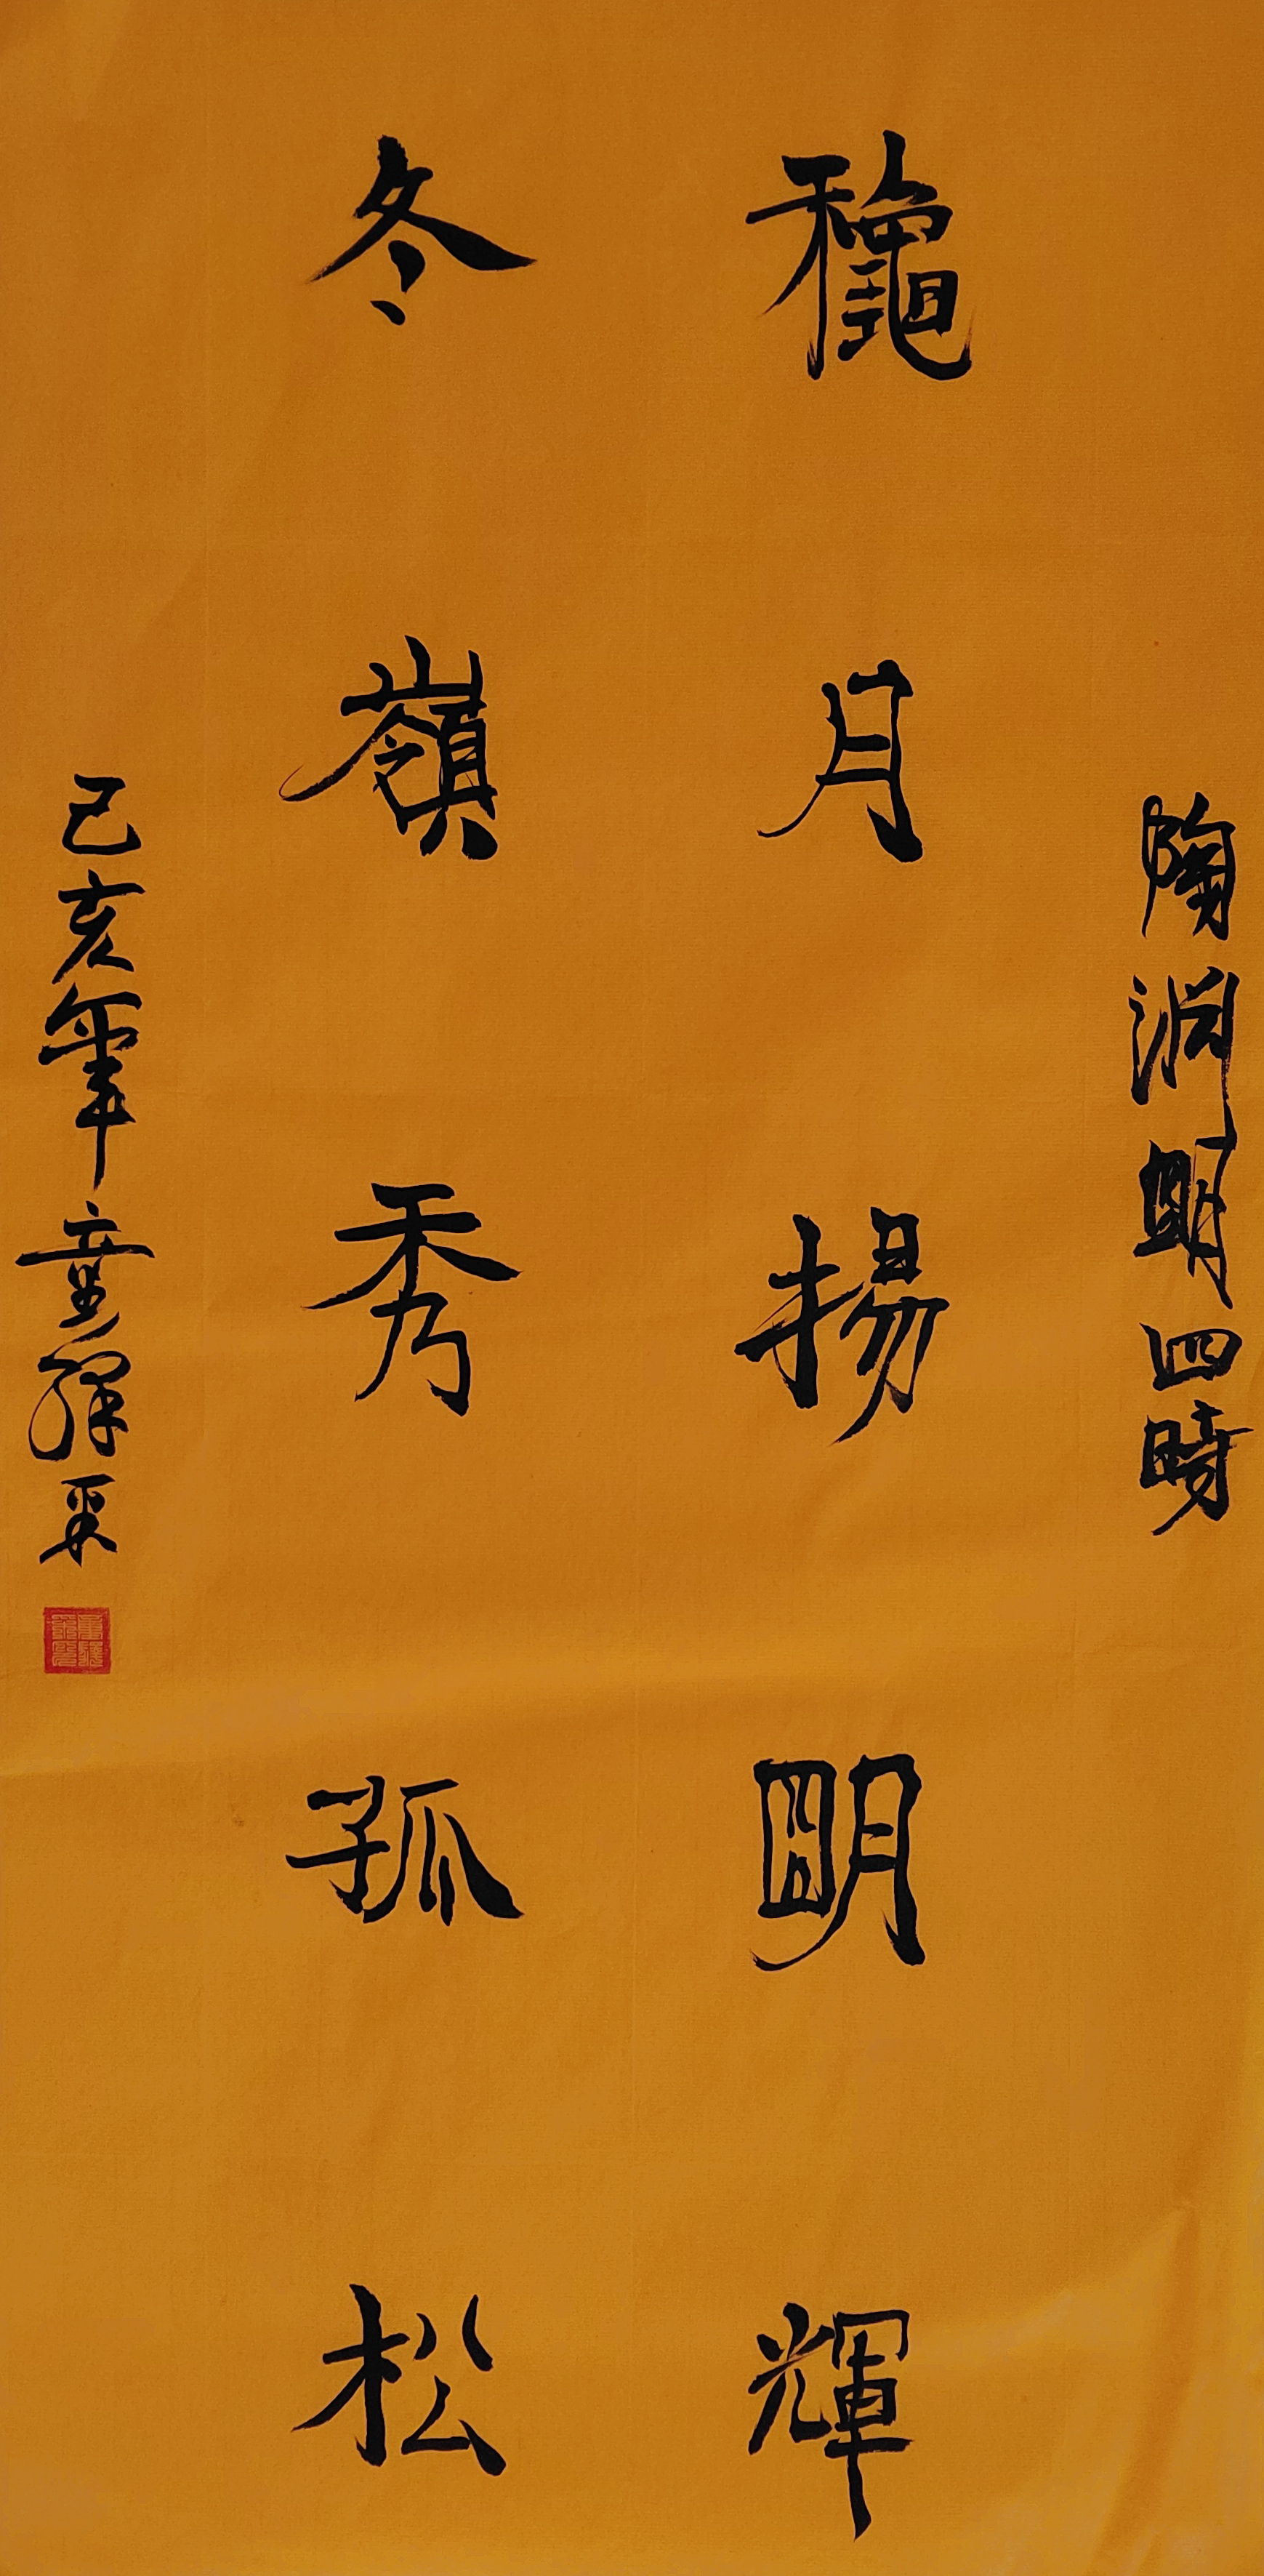 陶淵明四時
龝月揚明輝
冬嶺秀孤松
己亥年童釋采